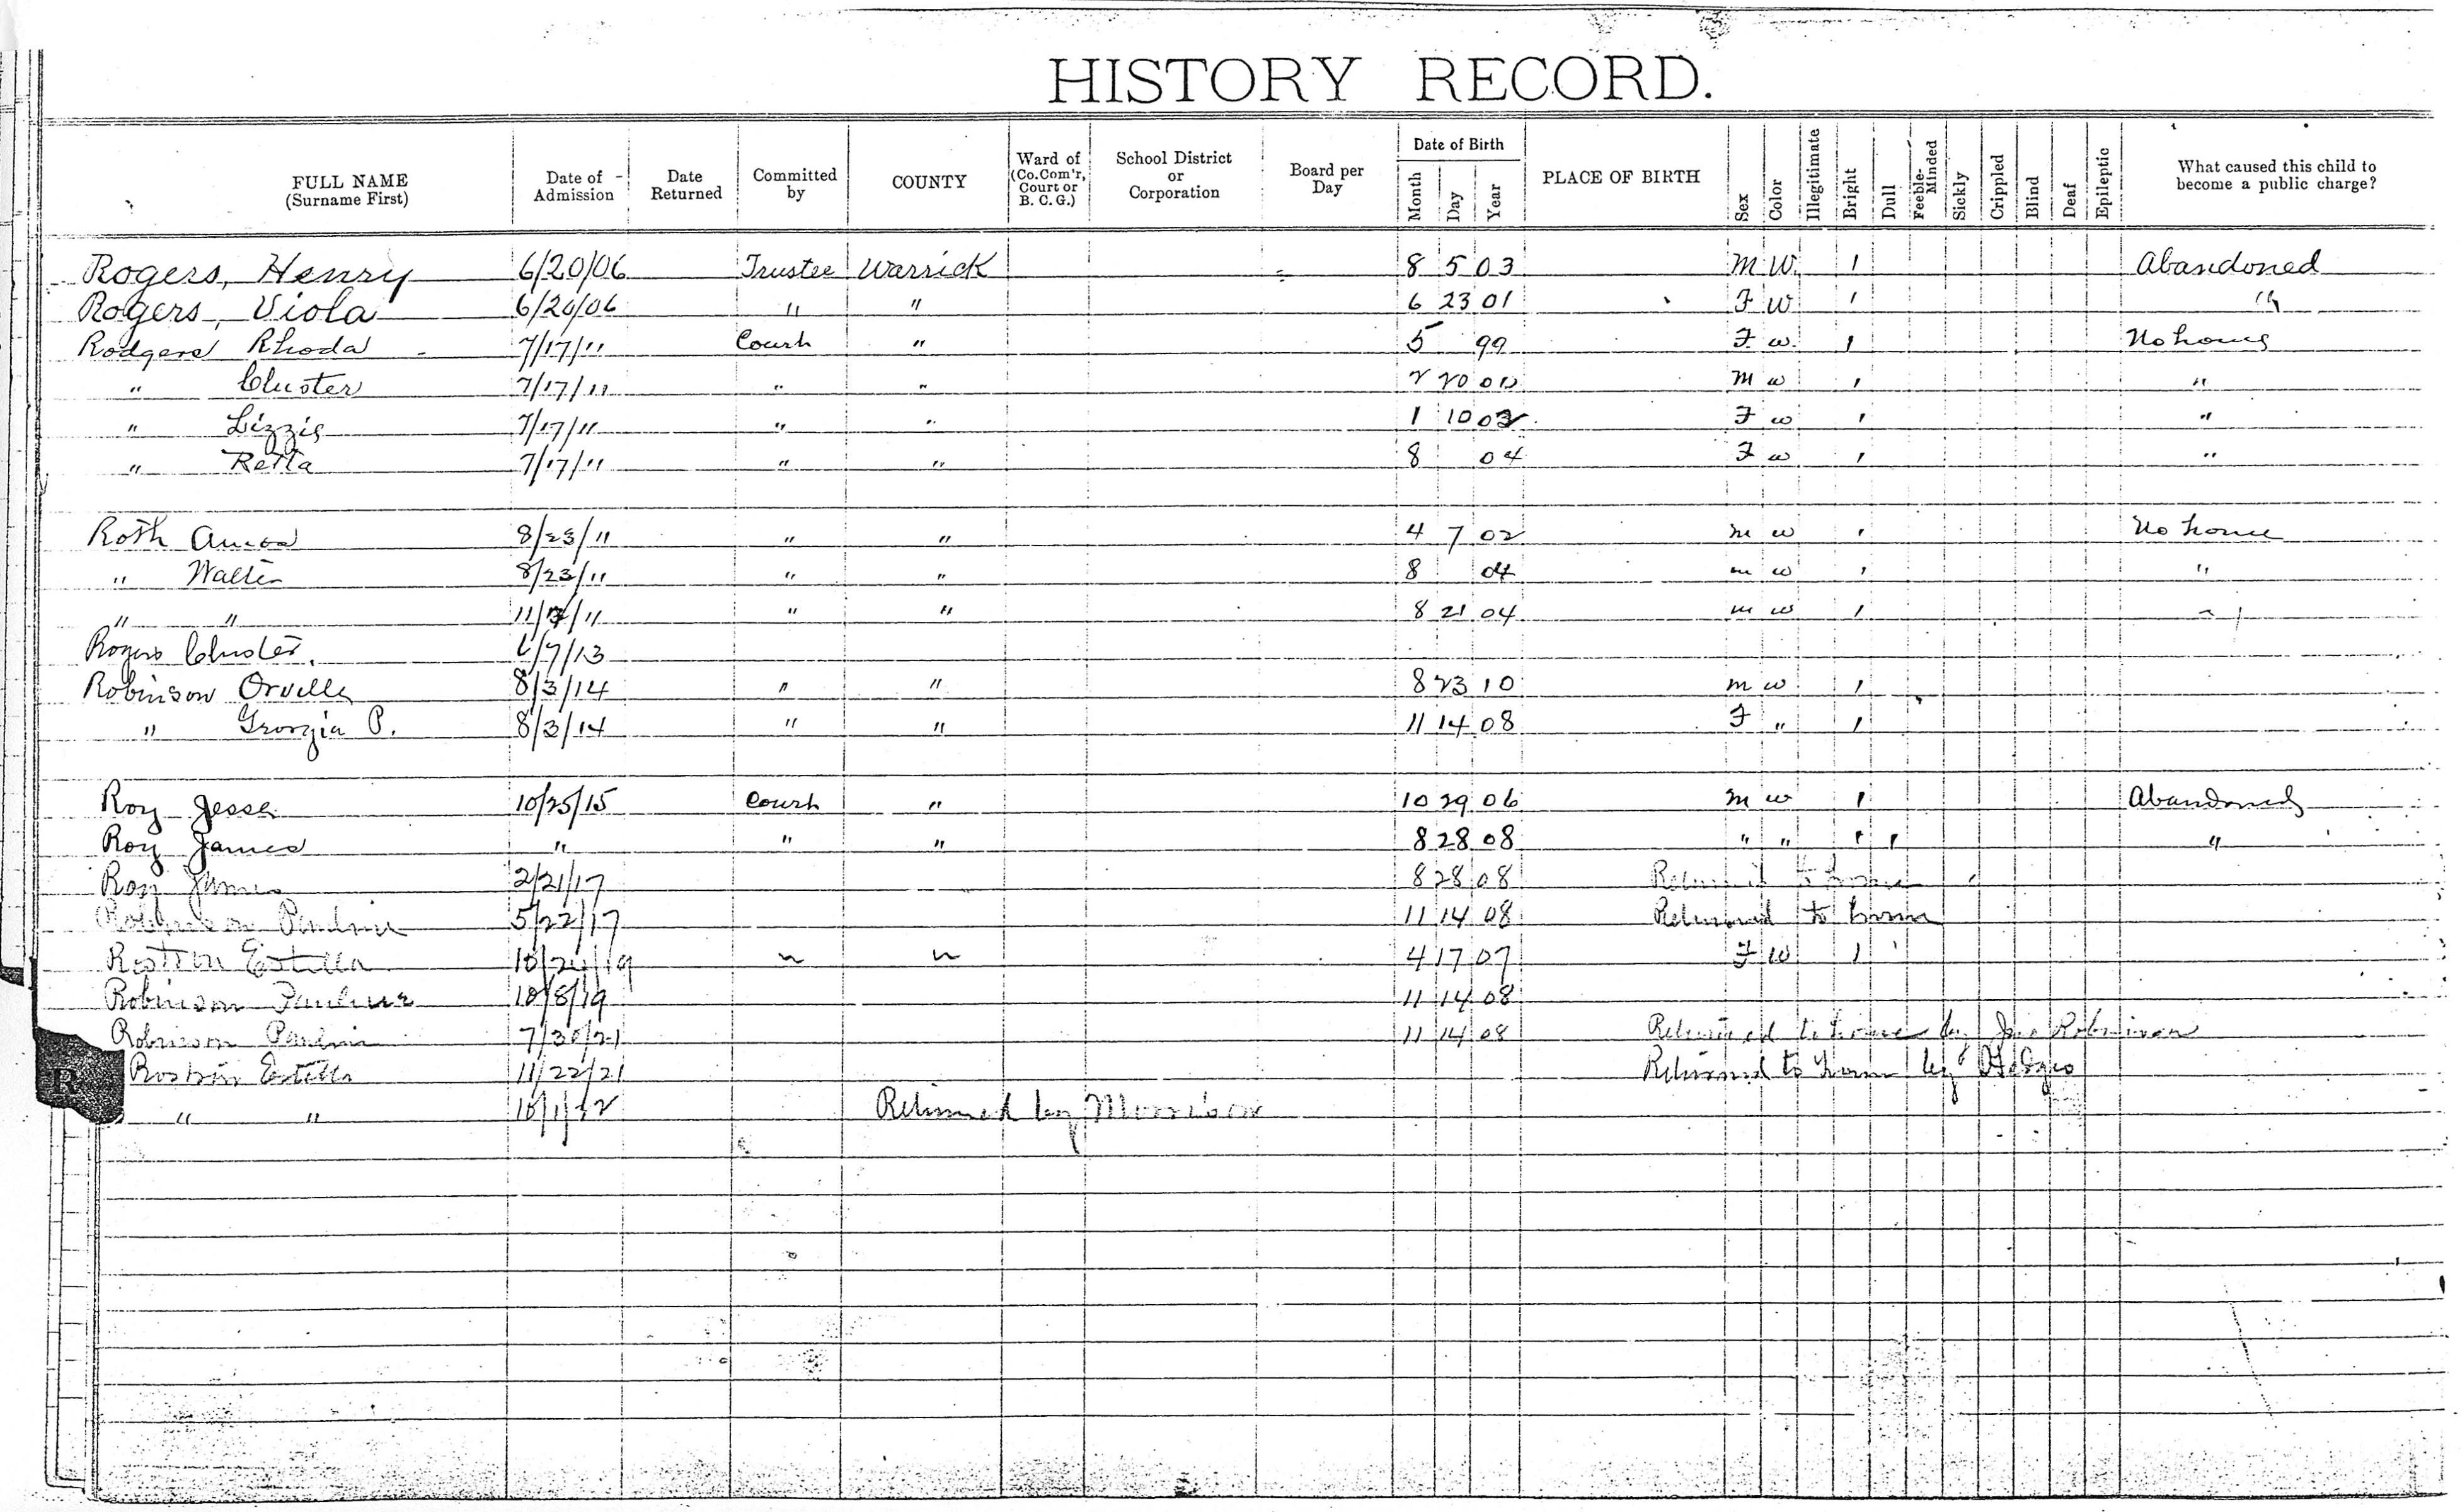 HISTORY RECORD.
FULL NAME (Surname First) Date of Admission Date Returned Committed by COUNTY Ward of (Co.Com'r, Court or B. C. G.) School District or Corporation Board per Day Date of Birth Month Day Year PLACE OF BIRTH Sex Color Illegitimate Bright Dull Feeble-Minded Sickly Crippled Blind Deaf Epileptic What caused this child to become a public charge?
Rogers, Henry 6/20/06 Trustee Warrick 8 5 03 M W. 1 Abandoned
Rogers, Viola 6/20/06 " " 6 23 01 F W 1 "
Rodgers Rhoda 7/17/11 Court " 5 99 F w. 1 No home
" Cluster 7/17/11 " " 2 20 00 M w 1 "
" Lizzie 7/17/11 " " 1 10 02 F w 1 "
" Retta 7/17/11 " " 8 04 F w 1 "
Roth Amos 8/23/11 " " 4 7 02 m w 1 No home
" Walter 8/23/11 " " 8 04 m w 1 "
" " 11/ /11 " " 8 21 04 m w 1 "
Rogers Cluster. /7/13
Robinson Orville 8/3/14 " " 8 23 10 m w 1
" Georgia P. 8/3/14 " " 11 14 08 F " 1
Roy Jesse 10/25/15 Court " 10 29 06 m w 1 Abandoned
Roy James " " " 8 28 08 " " 1 1 "
Roy James 2/21/17 8 28 08 Returned to home
Robinson Pauline 5/22/17 11 14 08 Returned to home
Estella 10/24/19 " " 4 17 07 F W 1
Robinson Pauline 10/8/19 11 14 08
Robinson Pauline 7/30/21 11 14 08 Returned to home by Robinson
Estella 11/22/21 Returned to home by Hedges
R
" " 10/1/22 Returned by Morrison